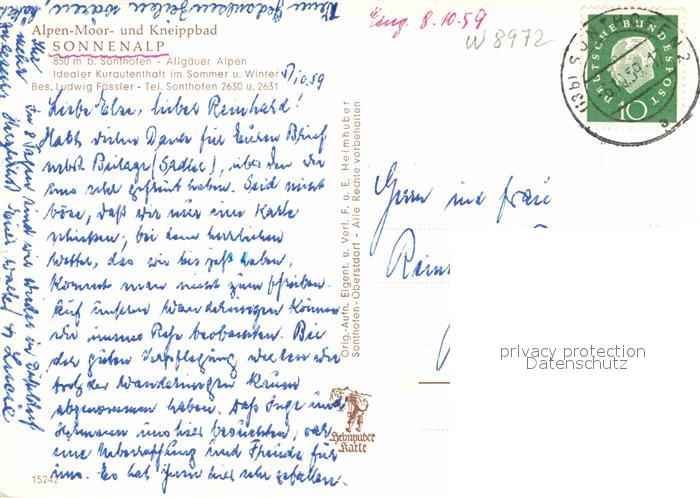 Alpen-Moor- und Kneippbad
SONNENALP
850 m b. Sonthofen - Allgäuer Alpen
Idealer Kuraufenthalt im Sommer u. Winter
Bes. Ludwig Fässler - Tel. Sonthofen 2630 u. 2631
10.59
Liebe Else, lieber Reinhard!
Habt vielen Dank für Euren Brief
nebst Beilage, über den wir
uns sehr gefreut haben. Seid nicht
böse, daß wir nur eine Karte
schicken; bei dem herrlichen
Wetter, das wir bis jetzt haben,
kommt man nicht zum Schreiben.
Auf unseren Wanderungen können
wir immer Rehe beobachten. Bei
der guten Verpflegung werden wir
trotz der Wanderungen kaum
abgenommen haben. Daß Inge und
Hermann uns hier besuchten, war
eine Überraschung und Freude für
uns. Es hat ihnen hier sehr gefallen.
In 8 Tagen sind wir wieder in Düsseldorf
Herzlichst Euer Walter u. Luise
Eing. 8.10.59
W 8972
DEUTSCHE BUNDESPOST
10
SONTHOFEN 2
(13b)
a
Herrn und Frau
Rein
Orig.-Aufn. Eigent. u. Verl. F. u. E. Heimhuber
Sonthofen-Oberstdorf - Alle Rechte vorbehalten
Heimhuber
Karte
privacy protection
Datenschutz
15242